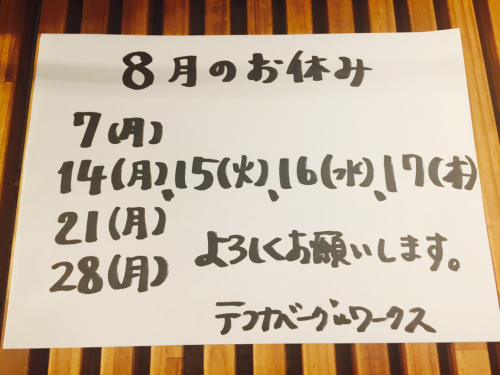 8月のお休み
7(月)
14(月)、15(火)、16(水)、17(木)
21(月)
28(月)
よろしくお願いします。
テコナベーグルワークス